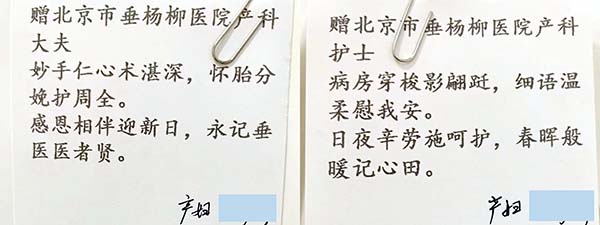 赠北京市垂杨柳医院产科
大夫
妙手仁心术湛深，怀胎分
娩护周全。
感恩相伴迎新日，永记垂
医医者贤。
产妇
赠北京市垂杨柳医院产科
护士
病房穿梭影翩跹，细语温
柔慰我安。
日夜辛劳施呵护，春晖般
暖记心田。
产妇